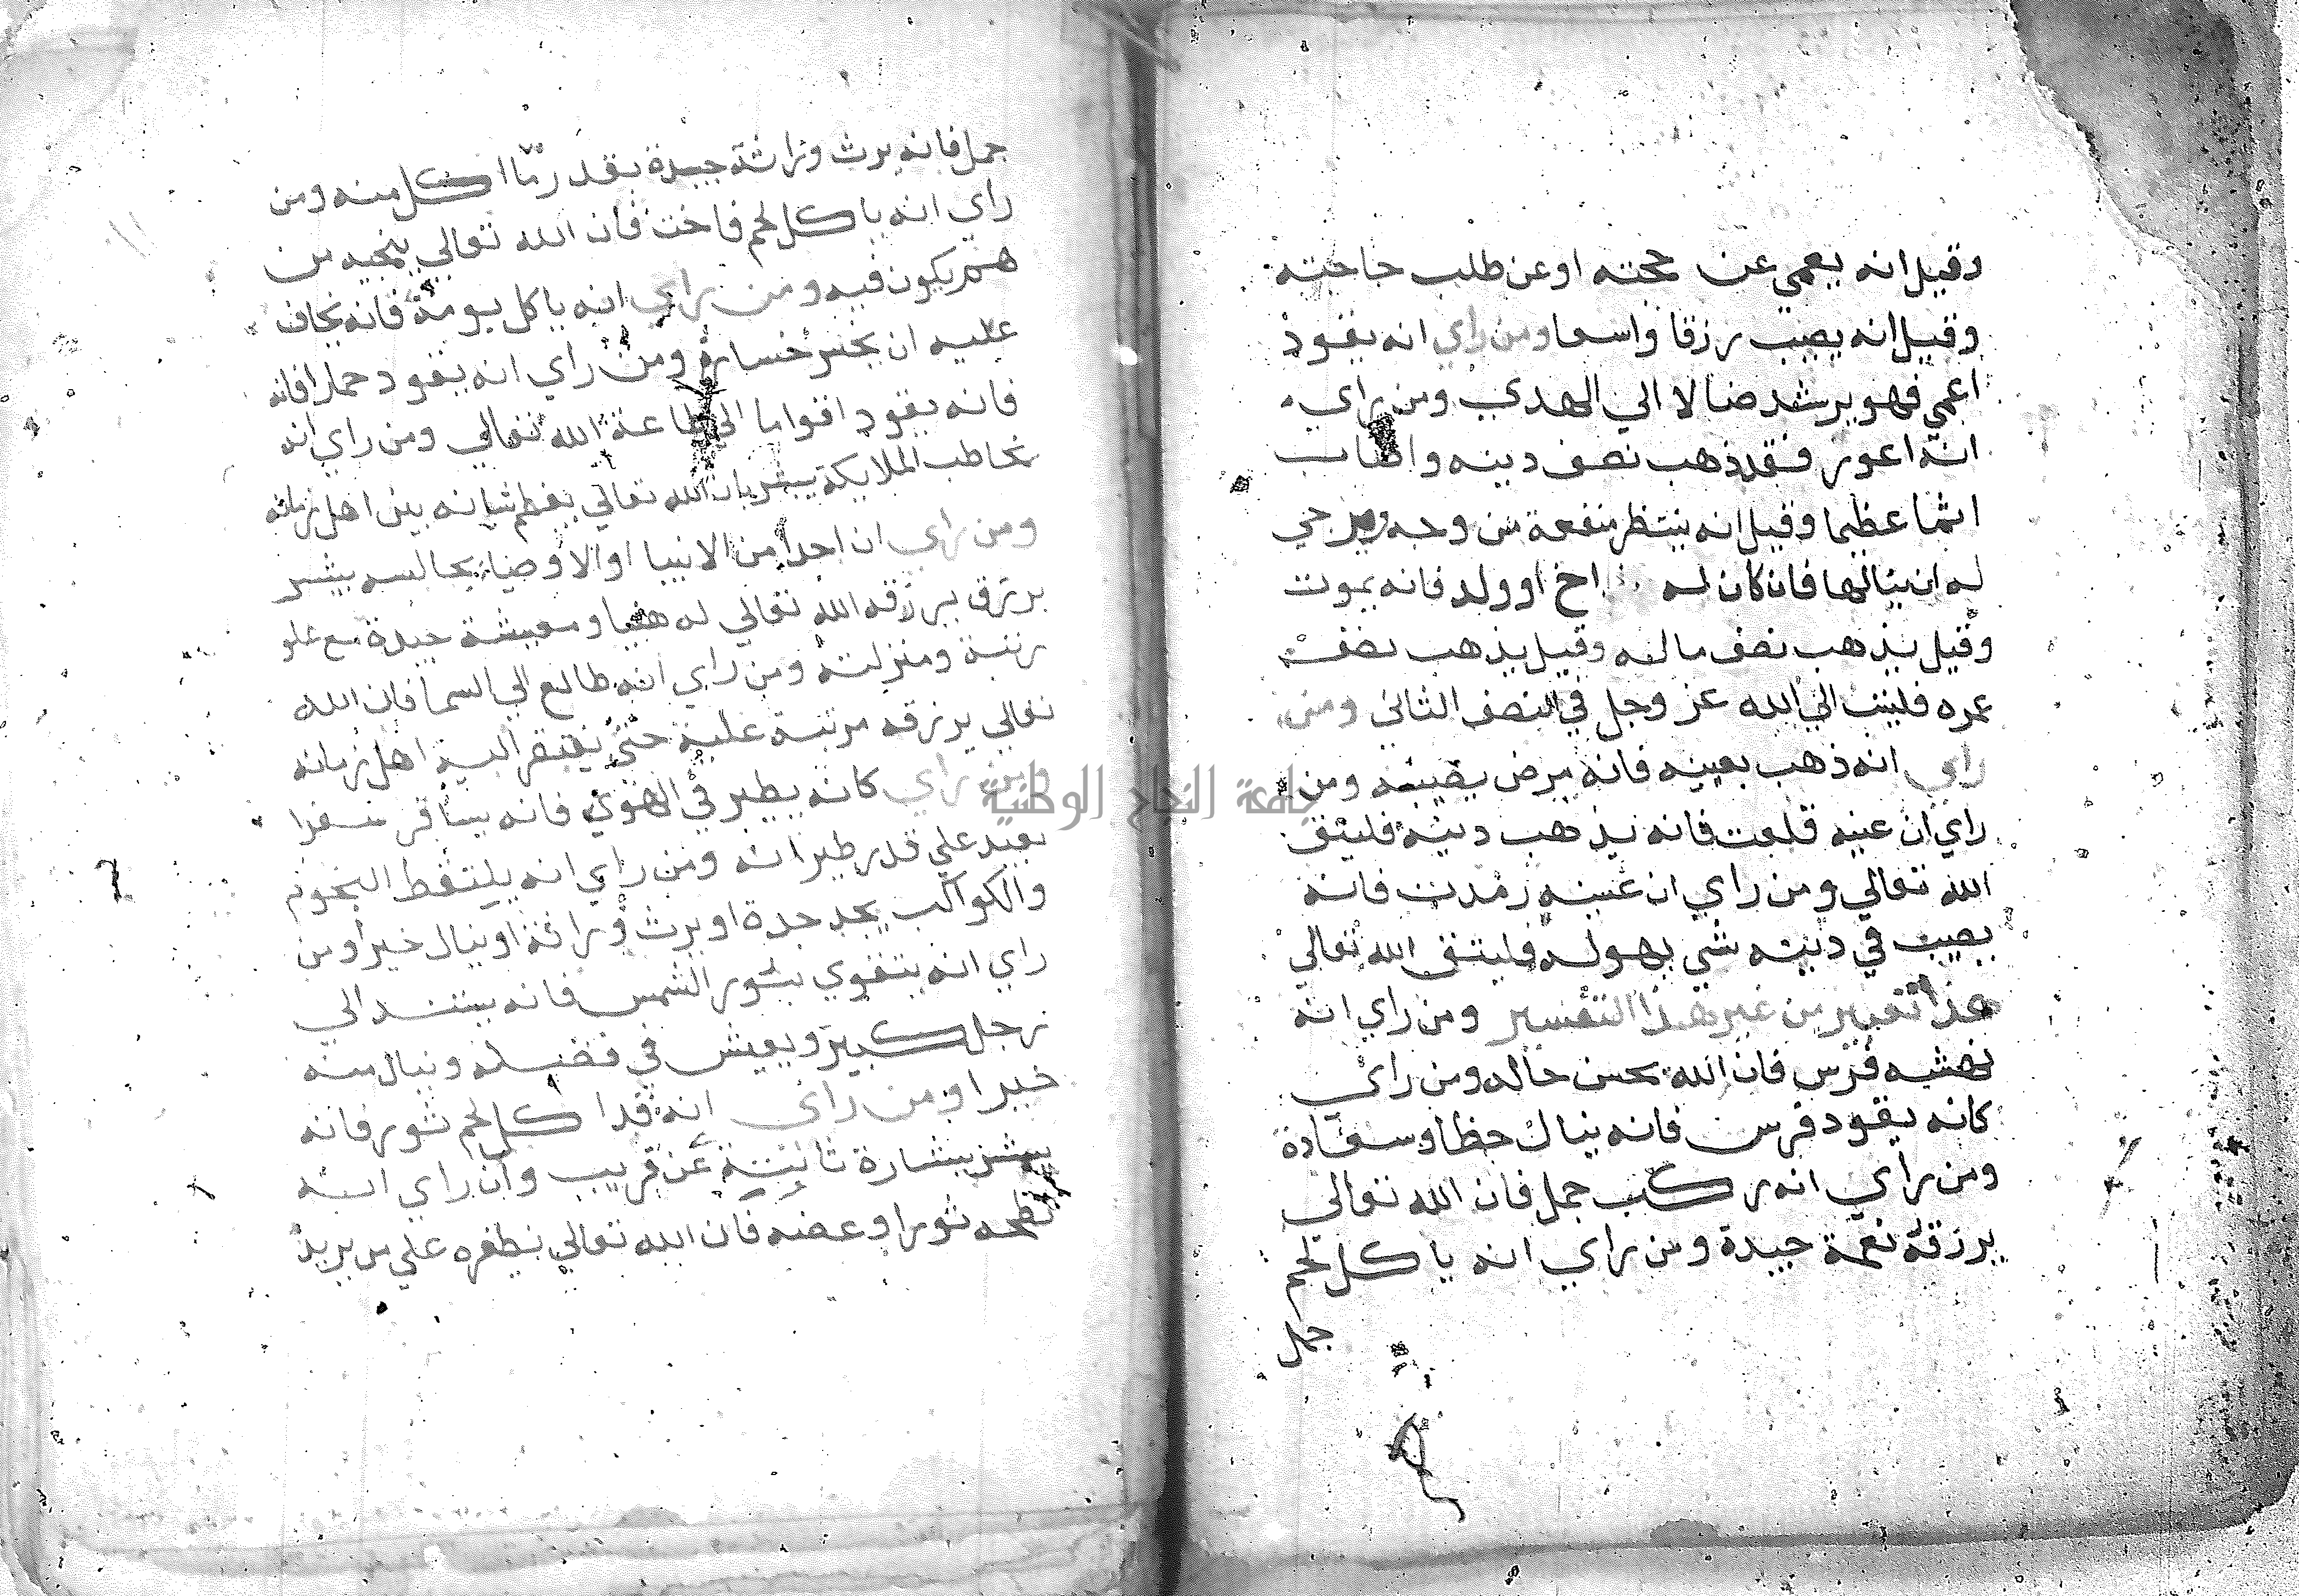 وقيل انه يعمي عن حجته او عن طلب حاجته
وقيل انه يصيب رزقا واسعا ومن راي انه يقود
اعمي فهو يرشد ضالا الي الهدي ومن راي
انه اعور فقد ذهب نصف دينه واصاب
اثما عظيما وقيل انه ينتظر منفعة من وجه ويرجي
له ان ينالها فان كان له اخ او ولد فانه يموت
وقيل يذهب نصف ماله وقيل يذهب نصف
عمره فليتب الي الله عز وجل في النصف الثاني ومن
راي انه ذهب بعينه فانه مرض يصيبه ومن
راي ان عينه قلعت فانه يذهب دينه فليتق
الله تعالي ومن راي ان عينه رمدت فانه
يصيب في دينه شي يهوله فليتقي الله تعالي
هذا تعبير من غير هذا التفسير ومن راي انه
نهشه فرس فان الله يحسن حاله ومن راي
كانه يقود فرس فانه ينال حظا وسعادة
ومن راي انه ركب جمل فان الله تعالي
يرزقه نعمة جيدة ومن راي انه ياكل لحم
جمل
جمل فانه يرث وراثة جيدة بقدر ما اكل منه ومن
راي انه ياكل لحم فاخت فان الله تعالي ينجيه من
هم يكون فيه ومن راي انه ياكل بومة فانه يخاف
عليه ان يخسر خسارة ومن راي انه يقود حمارا فانه
فانه يقود اقواما الي طاعة الله تعالي ومن راي انه
تخاطب الملايكة يبشر بان الله تعالي يعظم شانه بين اهل زمانه
ومن راي ان احدا من الانبيا او الاوصيا يجالسه يبشر
برزق يرزقه الله تعالي له هنيا ومعيشة جيدة مع علو
رتبة ومنزلته ومن راي انه طالع الي السما فان الله
تعالي يرزقه مرتبة علية حتي يفتقر اليه اهل زمانه
ومن راي كانه يطير في الهوي فانه يسافر سفرا
بعيد علي قدر طيرانه ومن راي انه يلتقط النجوم
والكواكب يجد جدة او يرث وراثة او ينال خيرا ومن
راي انه يتقوي بنور الشمس فانه يستند الي
رجل كبير ويعيش في فضله وينال منه
خيرا ومن راي انه قد اكل لحم ثور فانه
يبشر ببشارة تاتيه عن قريب وان راي انه
نطحه ثورا وعضه فان الله تعالي يظفره علي من يريد
جامعة النجاح الوطنية